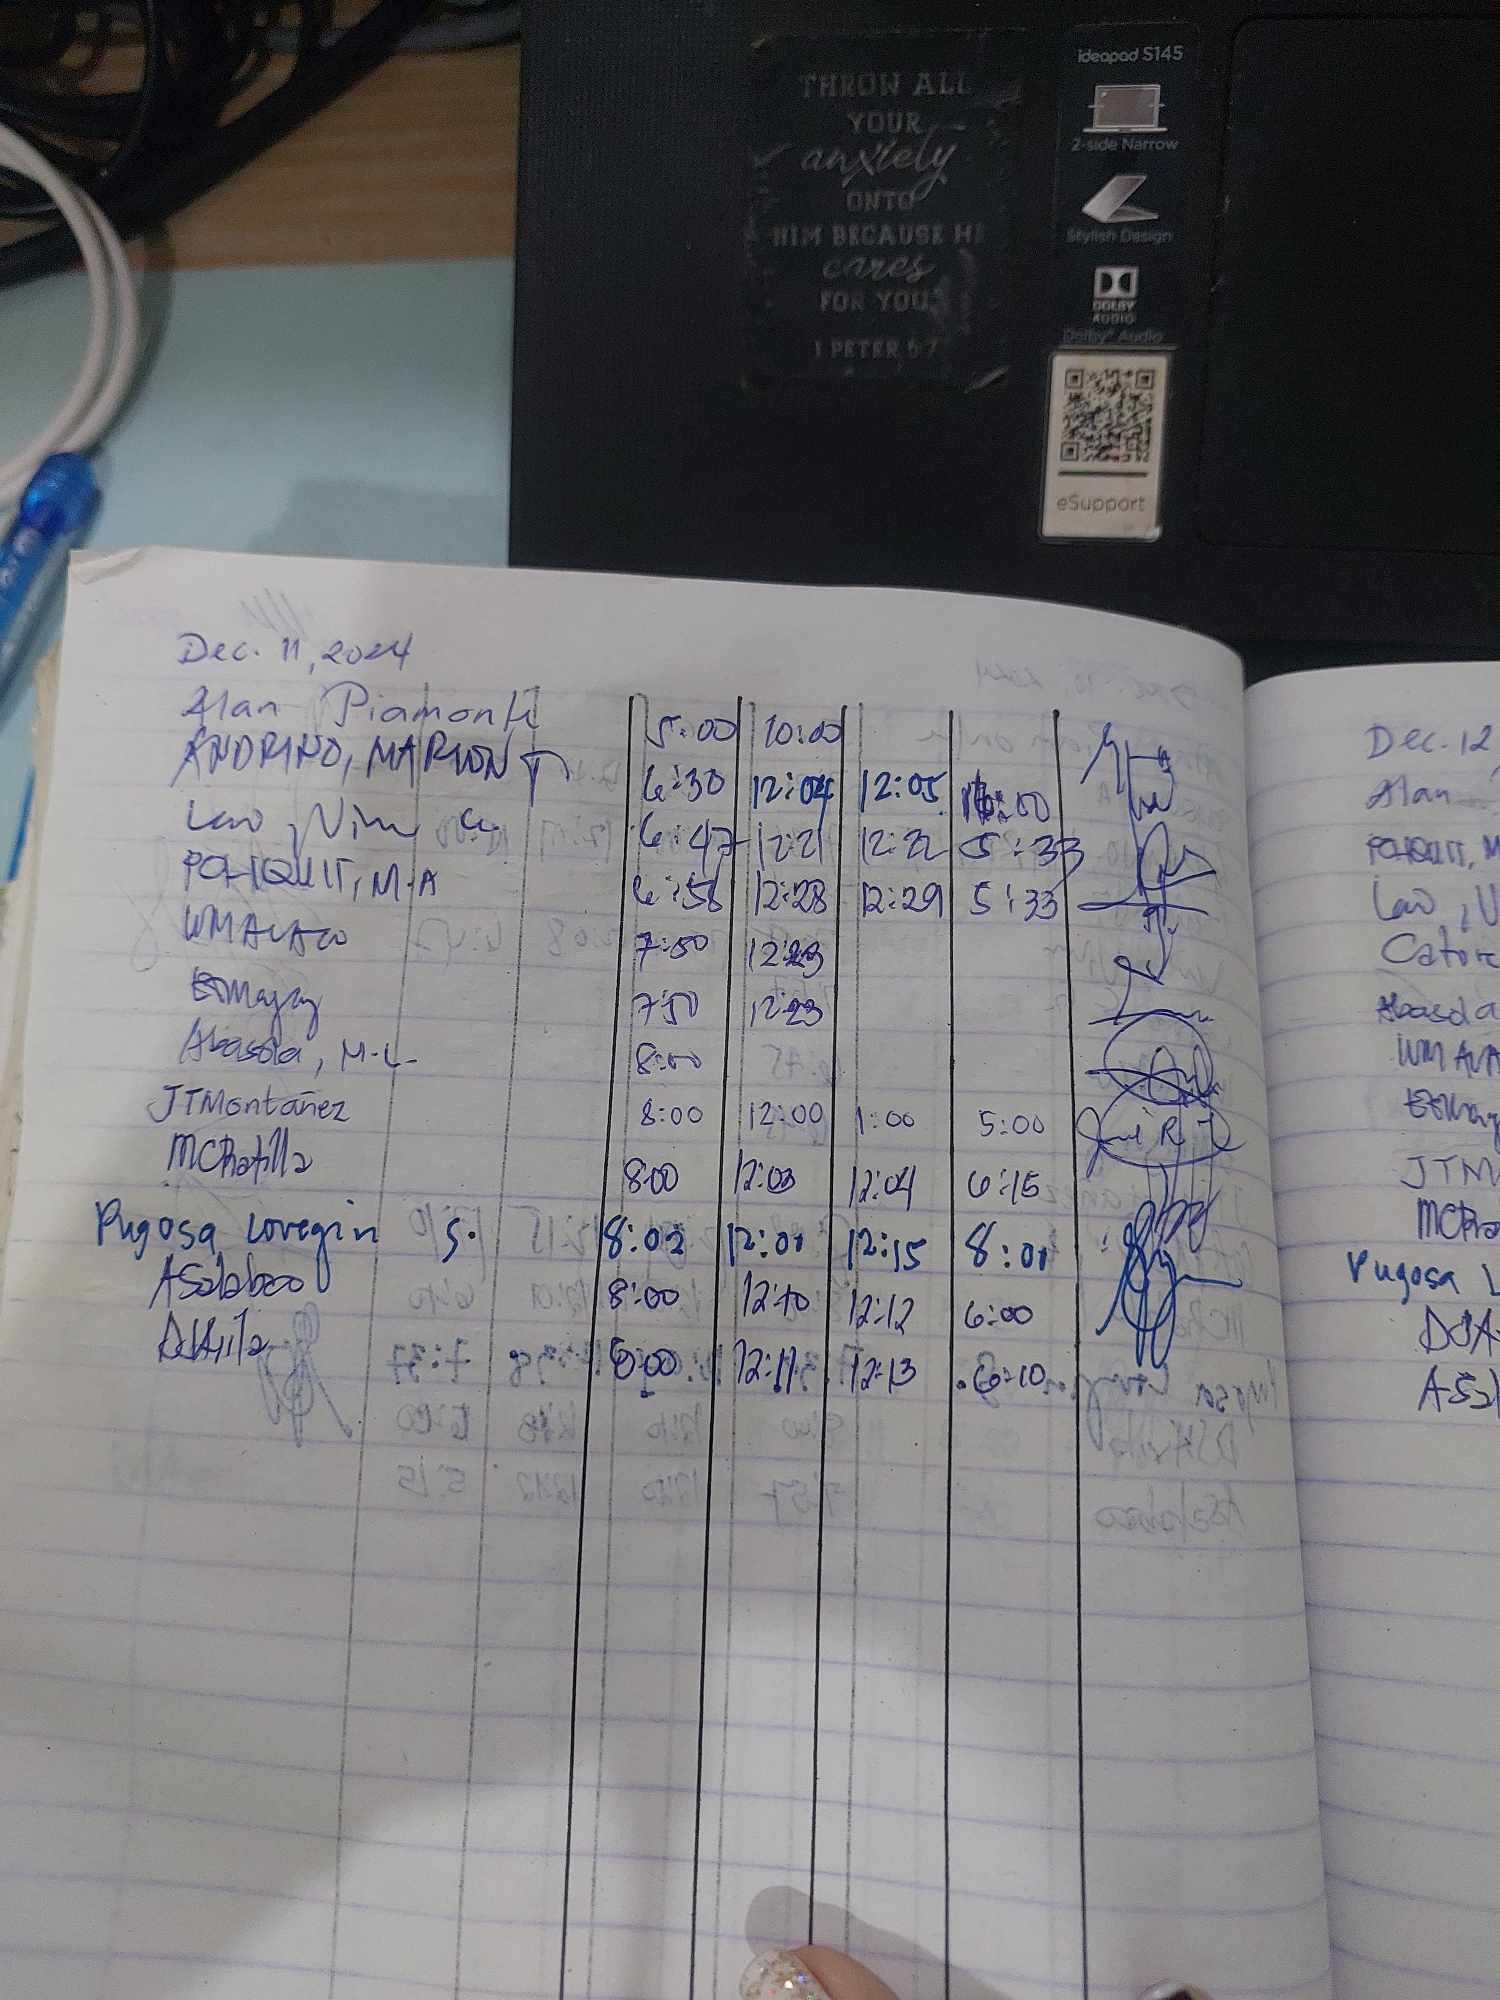 ideapad S145
2-side Narrow
Stylish Design
DOLBY
AUDIO
Dolby® Audio
eSupport
THROW ALL
YOUR
anxiety
ONTO
HIM BECAUSE HE
cares
FOR YOU
1 PETER 5:7
Dec. 11, 2024
Alan Piamonte 5:00 10:00
ANDRINO, MARLON T 6:30 12:04 12:05 6:00
Lao, 6:47 12:21 12:22 5:33
POLIQUIT, M.A 6:58 12:28 12:29 5:33
WMAVACO 7:50 12:23
7:50 12:23
Abasola, M.L. 8:00
JTMontañez 8:00 12:00 1:00 5:00
MCRatilla 8:00 12:03 12:04 6:15
Pugosa Lovegin S. 8:02 12:01 12:15 8:01
ASalabao 8:00 12:10 12:12 6:00
8:00 12:11 12:13 6:10
Dec. 12
Alan
POLIQUIT, M
Lao,
Abasola
WMAVA
JTM
MCRa
Pugosa L
ASal